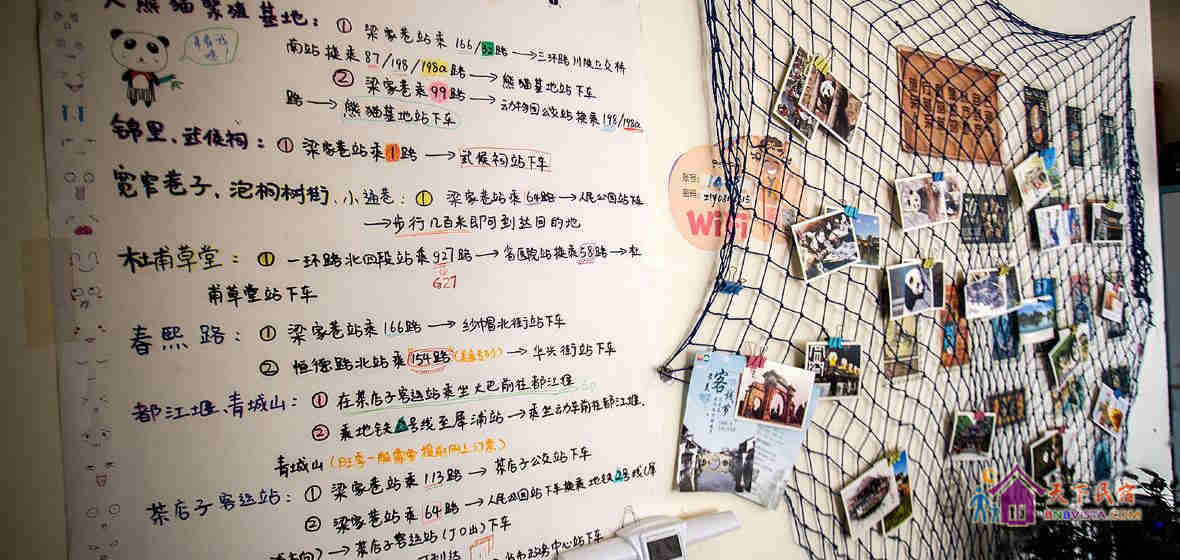 大熊猫繁殖基地：① 梁家巷站乘 166/82路 → 三环路川陕立交桥
南站换乘 87/198/198a 路 → 熊猫基地站下车
② 梁家巷乘 99 路 → 动物园公交站换乘 198/198a
路 → 熊猫基地站下车
锦里、武侯祠：① 梁家巷站乘 1 路 → 武侯祠站下车
宽窄巷子、泡桐树街、小通巷：① 梁家巷站乘 64路 → 人民公园站下车
→ 步行几百米即可到达目的地
杜甫草堂：① 一环路北四段站乘 927 路 → 省医院站换乘 58 路 → 杜
G27
甫草堂站下车
春熙路：① 梁家巷站乘 166 路 → 纱帽北街站下车
② 恒德路北站乘 154路 → 华兴街站下车
都江堰、青城山：① 在茶店子客运站乘坐大巴前往都江堰
② 乘地铁2号线至犀浦站 → 乘坐动车前往都江堰、
青城山（旺季一般需要提前网上订票）
茶店子客运站：① 梁家巷站乘 113 路 → 茶店子公交站下车
② 梁家巷站乘 64 路 → 人民公园站下车换乘地铁2号线（犀
方向）→ 茶店子客运站（J0出）下车
市政务中心站下车
WiFi
客栈节
天下民宿
BNBVISTA.COM